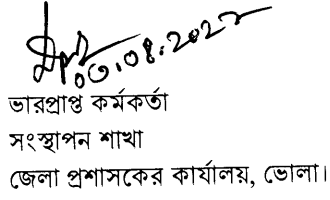 ০৩.০৪.২০২২
ভারপ্রাপ্ত কর্মকর্তা
সংস্থাপন শাখা
জেলা প্রশাসকের কার্যালয়, ভোলা।